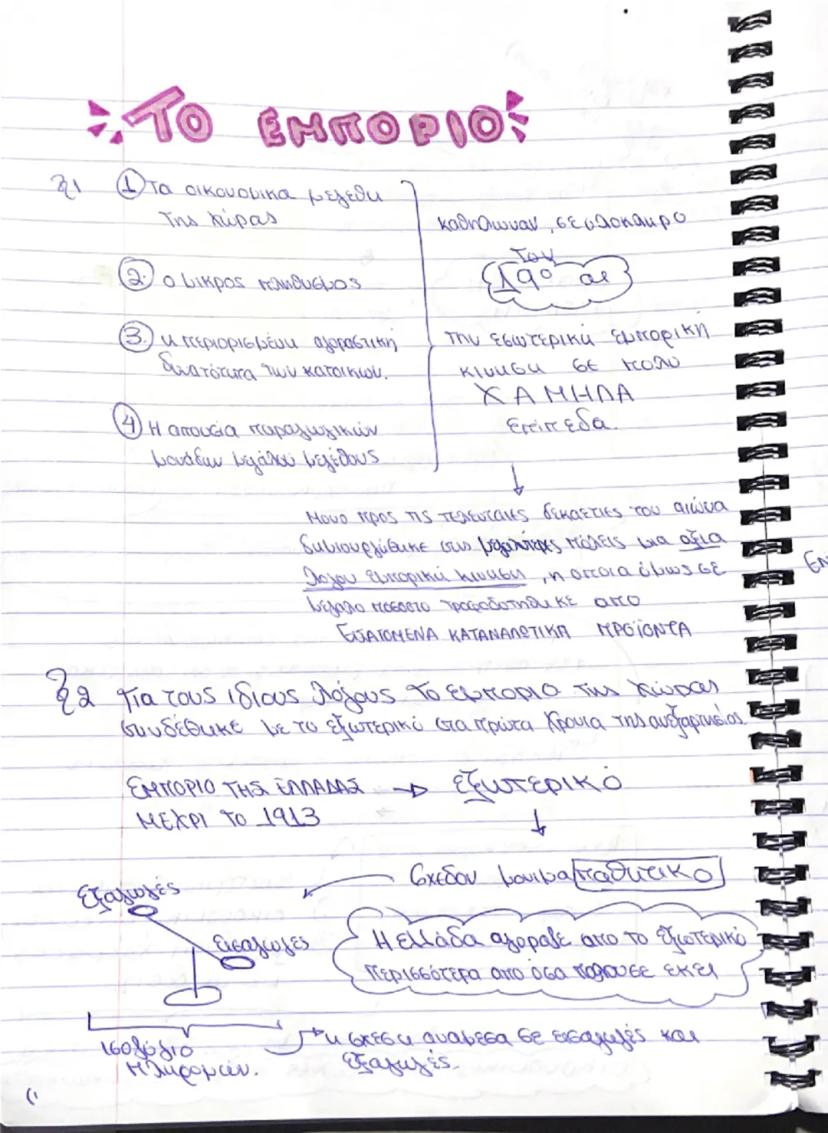 ΤΟ ΕΜΠΟΡΙΟ
ξ1 ① Τα οικονομικα μεγεθη
της χώρας
② ο μικρος πληθυσμος
③ η περιορισμένη αγοραστική
δυνατότητα των κατοικων.
④ Η απουσία παραγωγικών
μονάδων μεγάλου μεγέθους
καθηλωναν, σε ολοκληρο
τον
19ο αι
την εσωτερική εμπορική
κινηση σε πολυ
ΧΑΜΗΛΑ
επιπεδα.
↓
Μονο προς τις τελευταιες δεκαετιες του αιώνα
δημιουργήθηκε στις μεγαλυτερες πόλεις μια αξια
λογου εμπορική κινηση, η οποια όμως σε
μεγαλο ποσοστο τροφοδοτήθηκε απο
ΕΙΣΑΓΟΜΕΝΑ ΚΑΤΑΝΑΛΩΤΙΚΑ ΠΡΟΪΟΝΤΑ
ξ2 Για τους ιδιους λόγους το εμποριο της χώρας
συνδέθηκε με το εξωτερικό στα πρώτα χρονια της ανεξαρτησίας.
ΕΜΠΟΡΙΟ ΤΗΣ ΕΛΛΑΔΑΣ → εξωτερικό
ΜΕΧΡΙ ΤΟ 1913
↓
Σχεδον μονιμα παθητικο
Εξαγωγές
Εισαγωγές
Η ελλάδα αγοραζε απο το εξωτερικό
περισσότερα απο όσα πολουσε εκει
ισοζύγιο
πληρομών.
η σχεση αναμεσα σε εισαγωγές και
εξαγωγές.